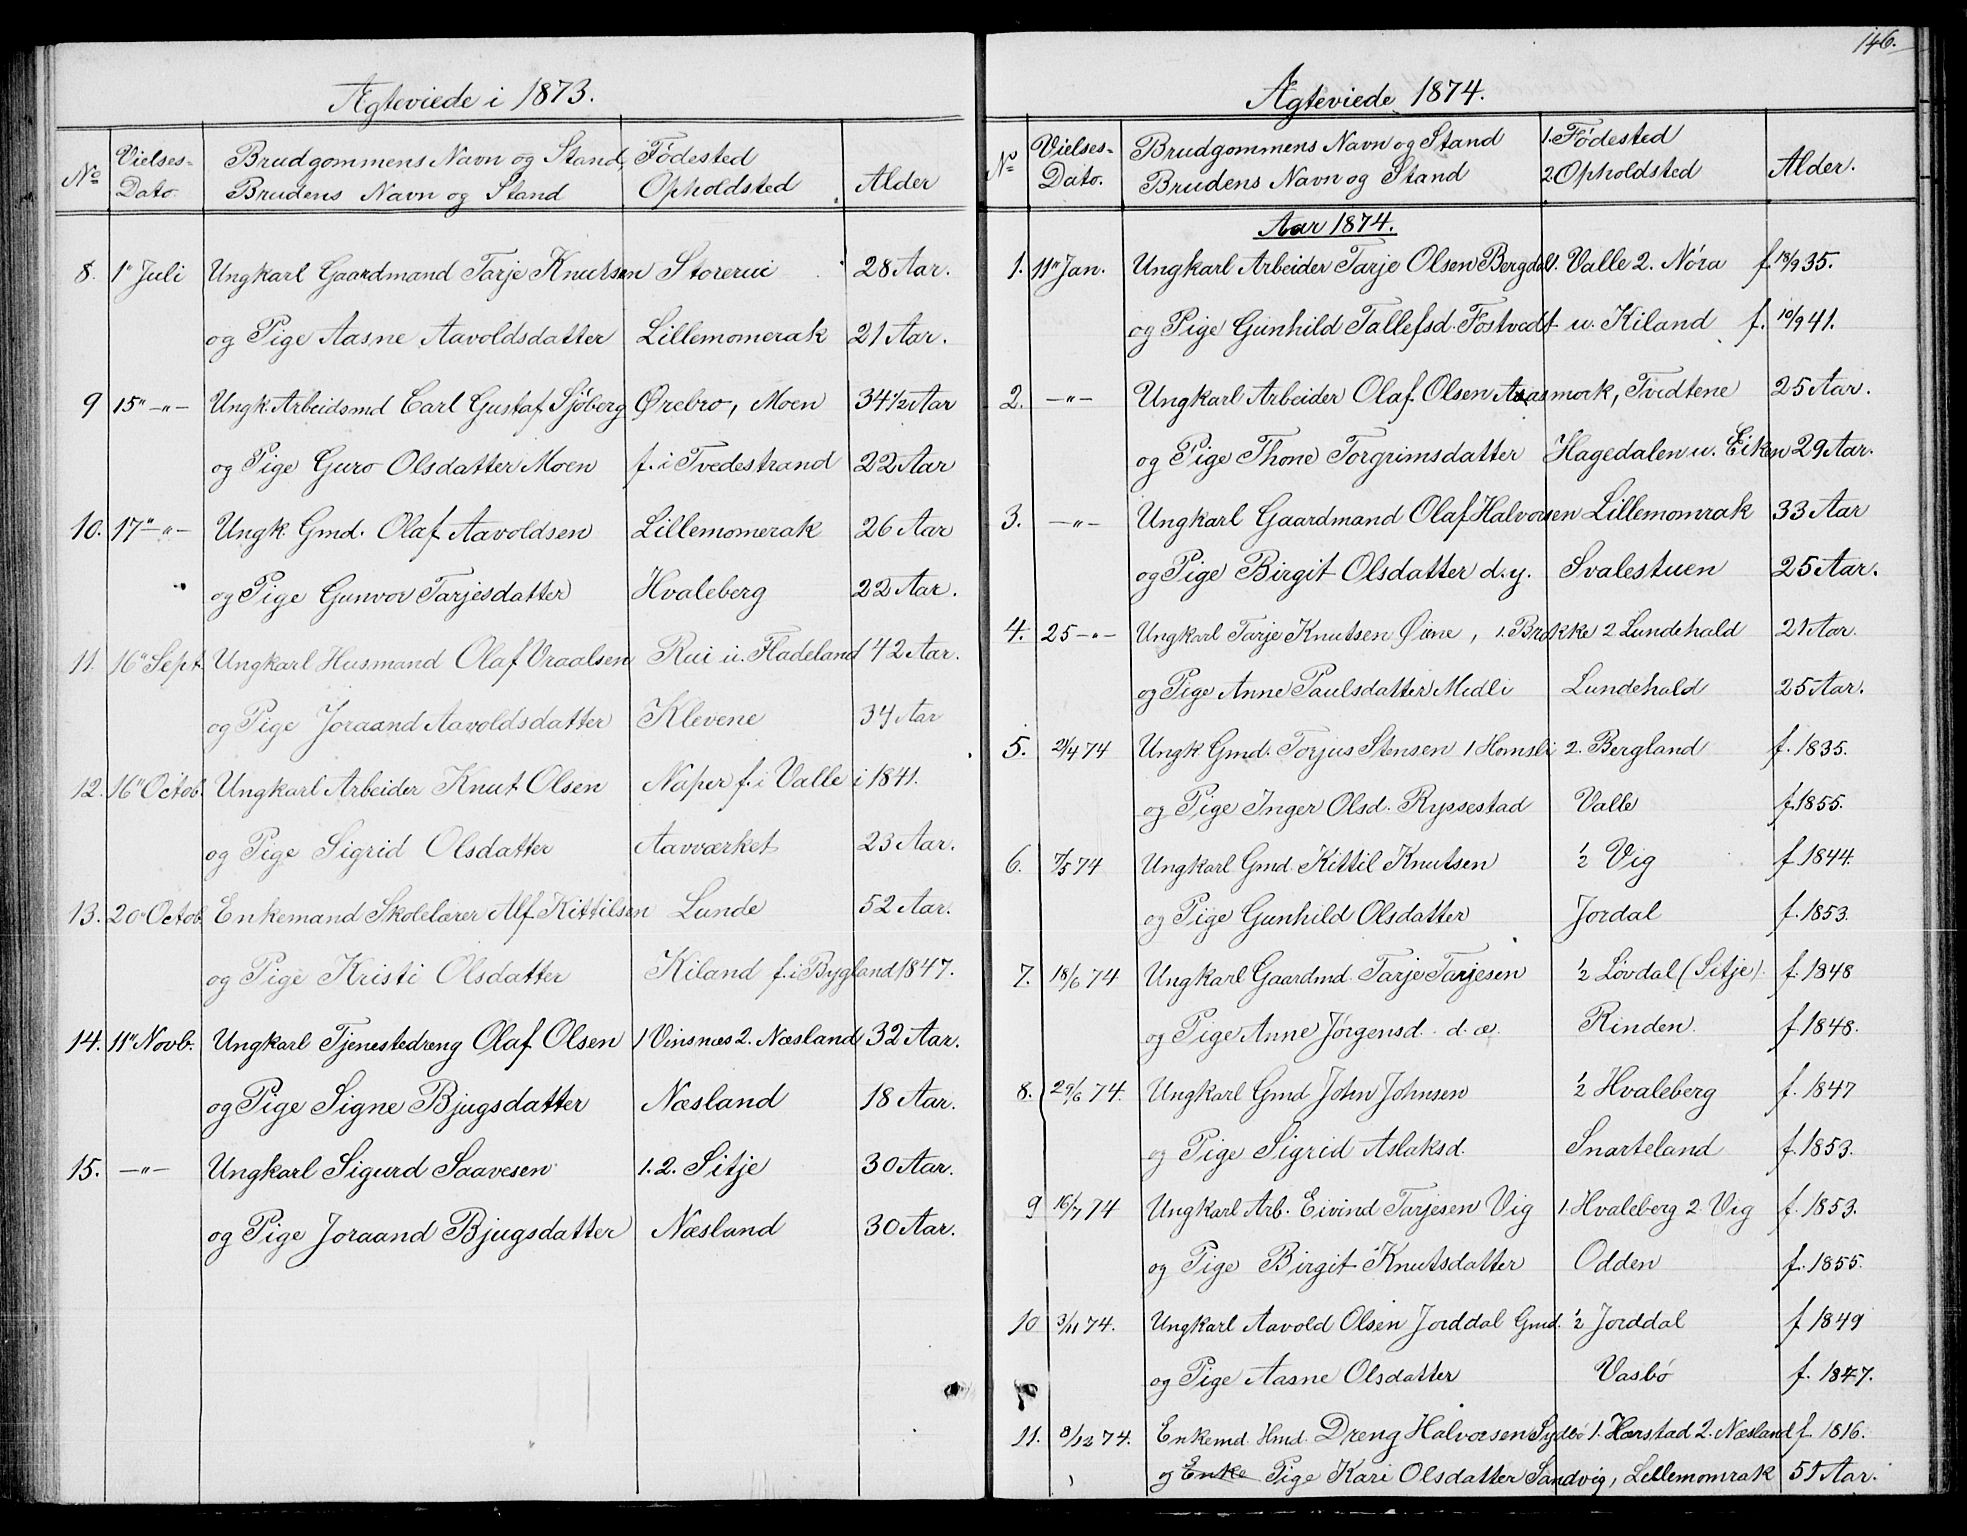 Ægteviede i 1873.
No
Vielses-
Dato.
Brudgommens Navn og Stand,
Brudens Navn og Stand
Fødested
Opholdsted
Alder
8. 1" Juli Ungkarl Gaardmand Tarje Knutsen Storerui 28 Aar.
og Pige Aasne Aavoldsdatter Lillemomerak 21 Aar.
9 15" -"- Ungk. Arbeidsmd Carl Gustaf Sjöberg Ørebro, Moen 34 1/2 Aar
og Pige Guro Olsdatter Moen f. i Tvedestrand 22 Aar
10. 17" -"- Ungk. Gmd. Olaf Aavoldsen Lillemomerak 26 Aar
og Pige Gunvor Tarjesdatter Hvaleberg 22 Aar.
11. 16" Sept. Ungkarl Husmand Olaf Vraalsen Rui u. Fladeland 42 Aar.
og Pige Joraand Aavoldsdatter Klevene 34 Aar
12. 16" Octob. Ungkarl Arbeider Knut Olsen Naper f. i Valle i 1841.
og Pige Sigrid Olsdatter Aavværket 23 Aar.
13. 20" Octob. Enkemand Skolelærer Alf Kittilsen Lunde 52 Aar.
og Pige Kristi Olsdatter Kiland f. i Bygland 1847.
14. 11" Novb. Ungkarl Tjenestedreng Olaf Olsen 1 Vinsnæs 2. Næsland 32 Aar.
og Pige Signe Bjugsdatter Næsland 18 Aar.
15. -"- Ungkarl Sigurd Saavesen 1. 2. Sitje 30 Aar.
og Pige Joraand Bjugsdatter Næsland 30 Aar.
146.
Ægteviede 1874.
No
Vielses-
Dato.
Brudgommens Navn og Stand
Brudens Navn og Stand
1. Fødested
2. Opholdsted
Alder.
Aar 1874.
1. 11" Jan. Ungkarl Arbeider Tarje Olsen Bergdal 1. Valle 2. Nøra f. 18/9 35.
og Pige Gunhild Tallefsd. Fostvedt u. Kiland f. 10/9 41.
2. -"- Ungkarl Arbeider Olaf Olsen Aasmork, Tvedtene 25 Aar.
og Pige Thone Torgrimsdatter Hagedalen u. Eiken 29 Aar.
3. -"- Ungkarl Gaardmand Olaf Halvorsen Lillemomrak 33 Aar
og Pige Birgit Olsdatter d. y. Svalestuen 25 Aar.
4. 25 -"- Ungkarl Tarje Knutsen Øine, 1. Brokke 2 Lundehald 21 Aar.
og Pige Anne Paulsdatter Midli Lundehald 25 Aar.
5. 21/4 74 Ungk. Gmd. Torjus Stensen 1 Homsli 2. Bergland f. 1835.
og Pige Inger Olsd. Ryssestad Valle f. 1855.
6. 7/5 74 Ungkarl Gmd. Kittil Knutsen 1/2 Vig f. 1844.
og Pige Gunhild Olsdatter Jordal f. 1853.
7. 18/6 74 Ungkarl Gaardmd. Tarje Tarjesen 1/2 Løvdal (Sitje). f. 1848
og Pige Anne Jørgensd. d. æ. Rinden. f. 1848.
8. 29/6 74. Ungkarl Gmd John Johnsen 1/2 Hvaleberg f. 1847
og Pige Sigrid Aslaksd. Snarteland f. 1853.
9 16/7 74 Ungkarl Arb. Eivind Tarjesen Vig 1. Hvaleberg 2. Vig f. 1853.
og Pige Birgit Knutsdatter Odden f. 1855.
10 3/11 74. Ungkarl Aavold Olsen Jorddal Gmd. 1/2 Jorddal f. 1849
og Pige Aasne Olsdatter Vasbø f. 1847.
11. 8/12 74. Enkemd. Hmd. Dreng Halvorsen Sydbø 1. Harstad 2. Næsland f. 1816.
og Enke Pige Kari Olsdatter Sandvig, Lillemomrak 51 Aar.